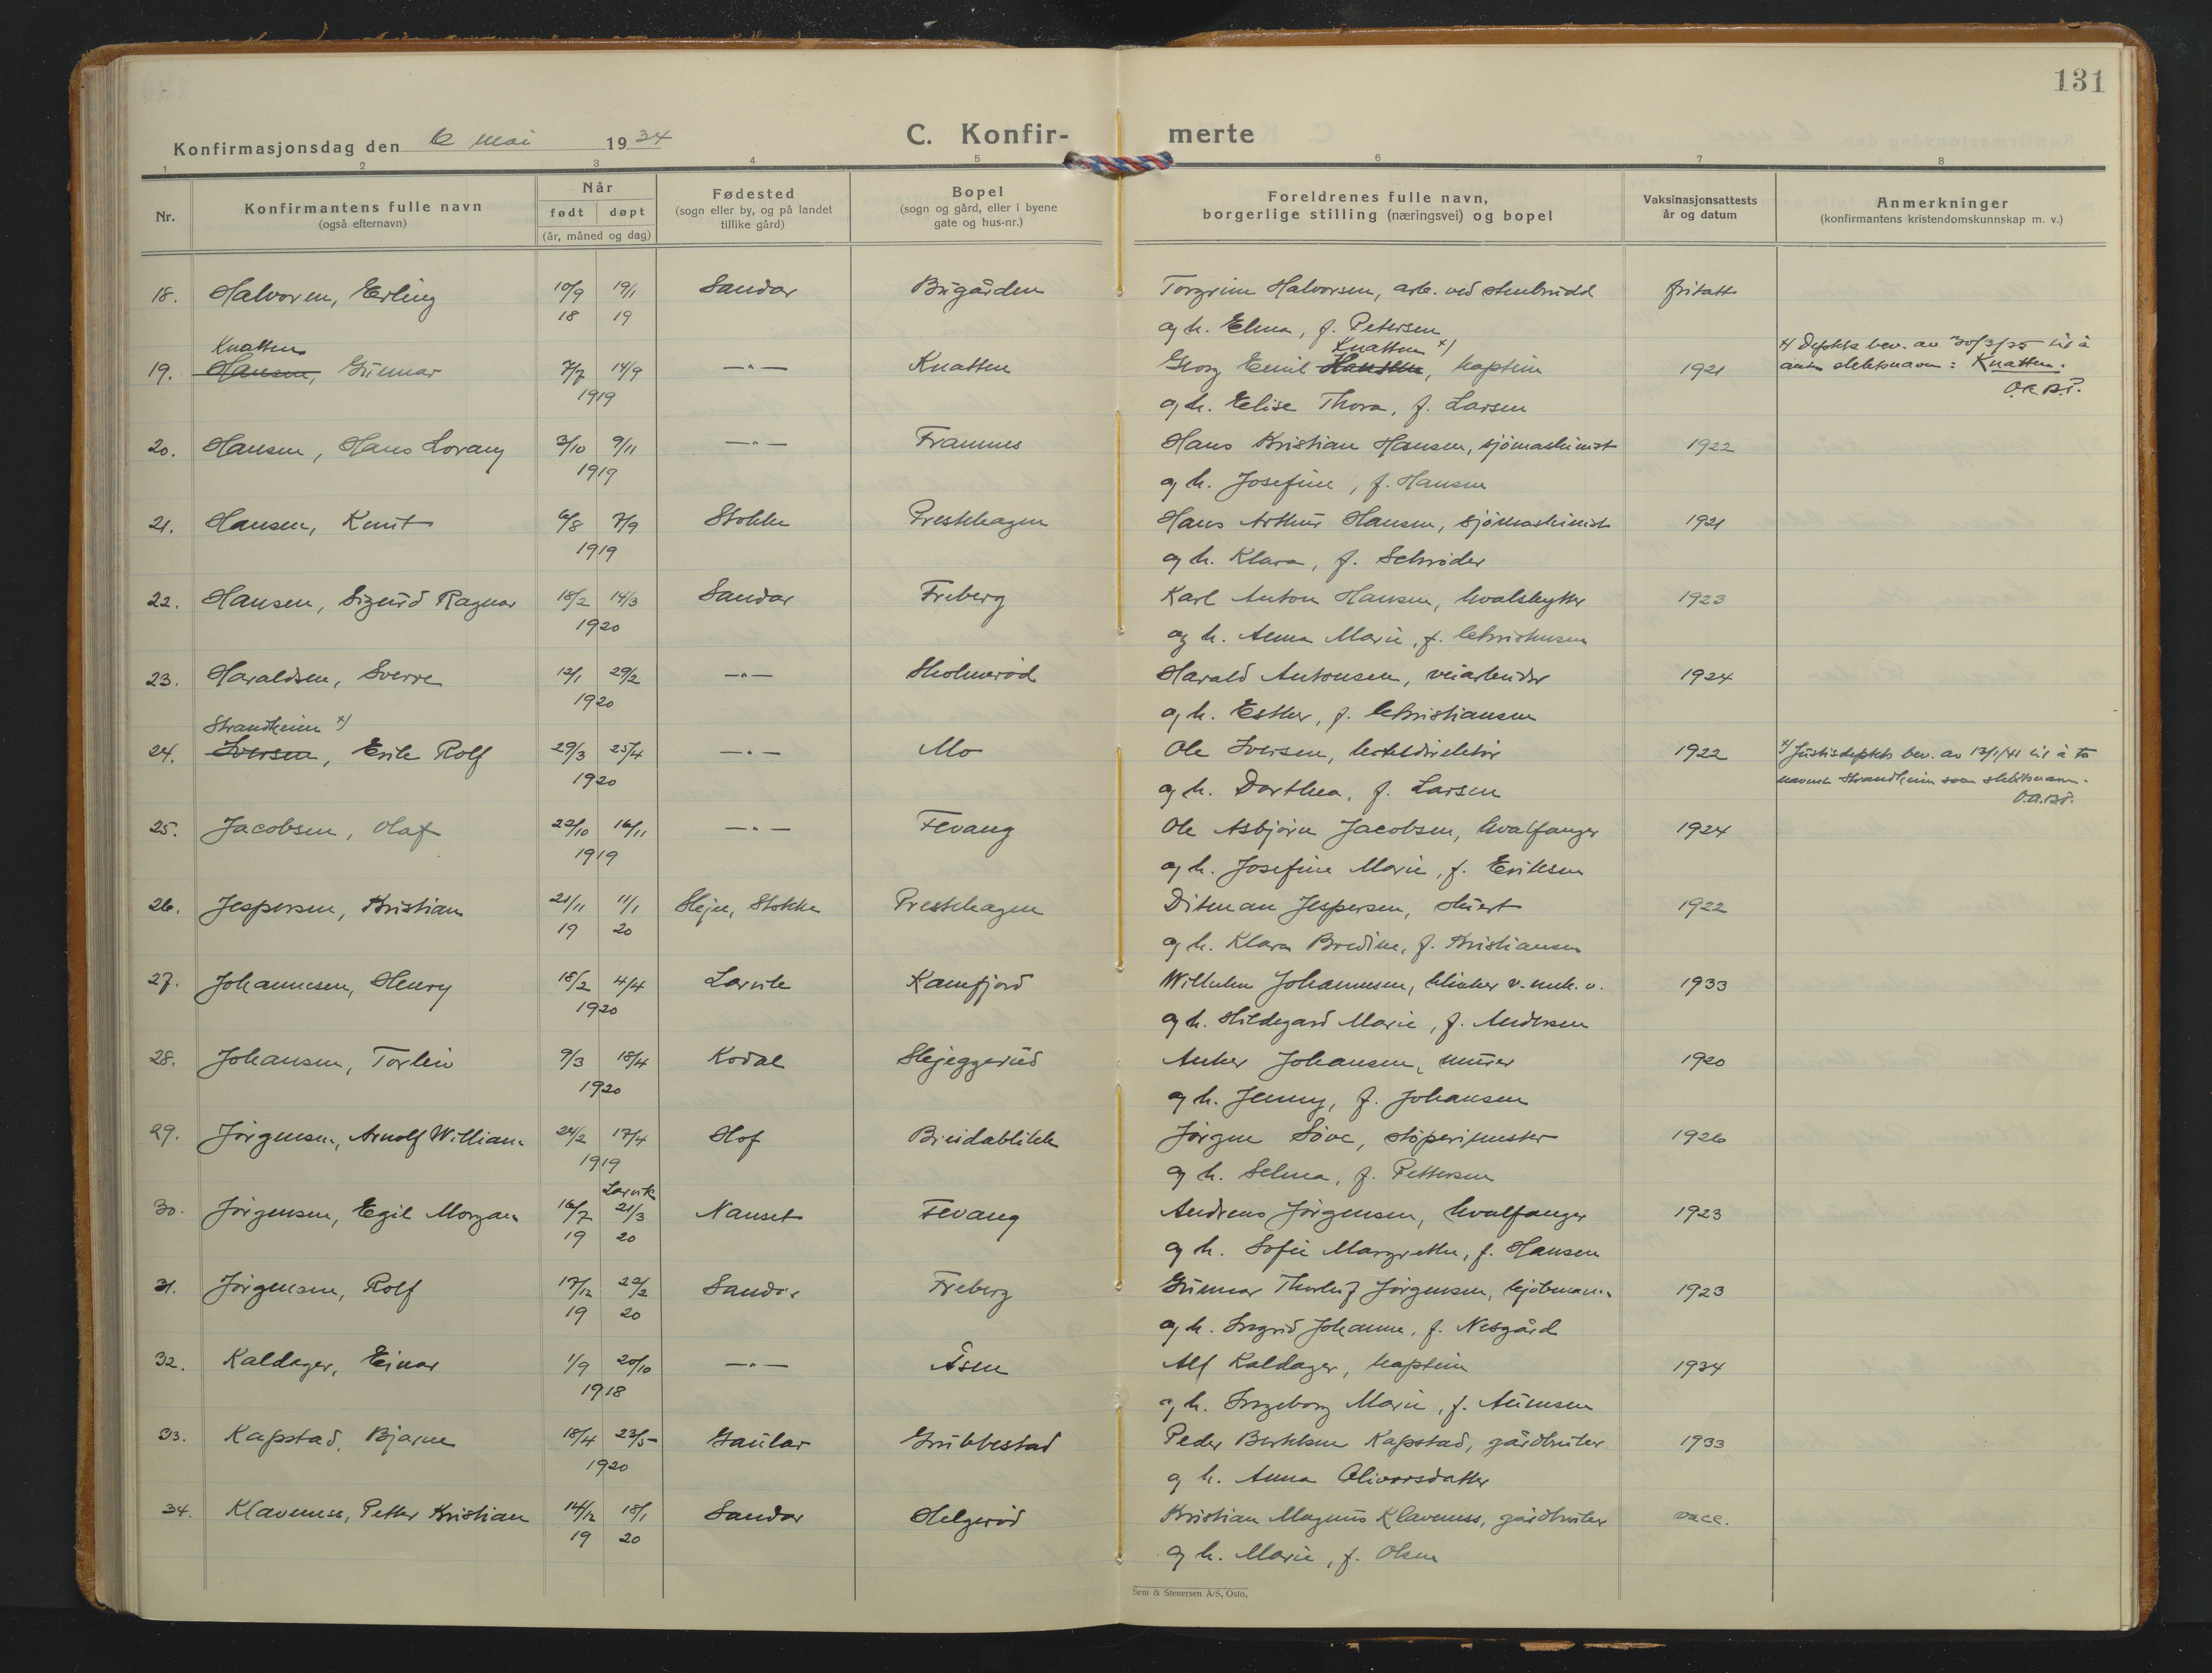 131
Konfirmasjonsdag den 6 mai 1934
C. Konfir- merte
1 2 3 4 5 6 7 8
Nr.
Konfirmantens fulle navn
(også efternavn)
Når
født døpt
(år, måned og dag)
Fødested
(sogn eller by, og på landet
tillike gård)
Bopel
(sogn og gård, eller i byene
gate og hus-nr.)
Foreldrenes fulle navn,
borgerlige stilling (næringsvei) og bopel
Vaksinasjonsattests
år og datum
Anmerkninger
(konfirmantens kristendomskunnskap m. v.)
18. Halvorsen, Erling 10/9 19/1 Sandar Bugården Torgrim Halvorsen, arb. ved stenbrudd fritatt
18 19 og h. Elma, f. Petersen
Knatten Knatten x)
19. Hansen, Gunnar 7/7 14/9 —"— Knatten Georg Emil Hansen, kaptein 1921
x) Depkts bev. av 20/3/35 til å
anta slektsnavn: Knatten.
O.A.B.P.
1919 og h. Elise Thora, f. Larsen
20. Hansen, Hans Lorang 3/10 9/11 —"— Framnes Hans Kristian Hansen, sjömaskinist 1922
1919 og h. Josefine, f. Hansen
21. Hansen, Knut 6/8 7/9 Stokke Prestehagen Hans Arthur Hansen, sjömaskinist 1921
1919 og h. Klara, f. Schrøder
22. Hansen, Sigurd Ragnar 18/2 14/3 Sandar Freberg Karl Anton Hansen, hvalskytter 1923
1920 og h. Anna Marie, f. Christensen
23. Haraldsen, Sverre 12/1 29/2 —"— Skolmerød Harald Antonsen, veiarbeider 1924
1920 og h. Esther, f. Christiansen
Strandheim x)
24. Iversen, Erik Rolf 29/3 25/4 —"— Mo Ole Iversen, hoteldirektör 1922
x) Justisdepkts bev. av 13/1/41 til å ta
navnet Strandheim som slektsnavn.
O.A.B.P.
1920 og h. Dorthea, f. Larsen
25. Jacobsen, Olaf 22/10 16/11 —"— Fevang Ole Asbjörn Jacobsen, hvalfanger 1924
1919 og h. Josefine Marie, f. Eriksen
26. Jespersen, Kristian 21/11 11/1 Skjee, Stokke Prestehagen Ditman Jespersen, stuert 1922
19 20 og h. Klara Bredine, f. Kristiansen
27. Johannesen, Henry 18/2 4/4 Larvik Kamfjord Wilhelm Johannesen, klinker v. mek. v. 1933
1920 og h. Hildegard Marie, f. Andersen
28. Johansen, Torleiv 9/3 18/4 Kodal Skjeggerud Anker Johansen, murer 1920
1920 og h. Jenny, f. Johansen
29. Jörgensen, Arnolf William 24/2 17/4 Hof Breidablikk Jörgen Söve, støperimester 1926
1919 og h. Selma, f. Pettersen
Larvik
30. Jörgensen, Egil Morgan 16/7 21/3 Nanset Fevang Andreas Jörgensen, hvalfanger 1923
19 20 og h. Sofie Margrethe, f. Hansen
31. Jörgensen, Rolf 17/12 22/2 Sandar Freberg Gunnar Thorleif Jörgensen, kjöbmann 1923
19 20 og h. Ingrid Johanne, f. Nesgård
32. Kaldager, Einar 1/9 20/10 —"— Åsen Alf Kaldager, kaptein 1934
1918 og h. Ingeborg Marie, f. Aumsen
33. Kapstad, Bjarne 18/4 23/5 Gaular Grubbestad Peder Bertelsen Kapstad, gårdbruker 1933
1920 og h. Anna Olivarsdatter
34. Klavenes, Petter Kristian 14/12 18/1 Sandar Helgerød Kristian Magnus Klaveness, gårdbruker vacc.
19 20 og h. Marie, f. Olsen
Sem & Stenersen A/S, Oslo.